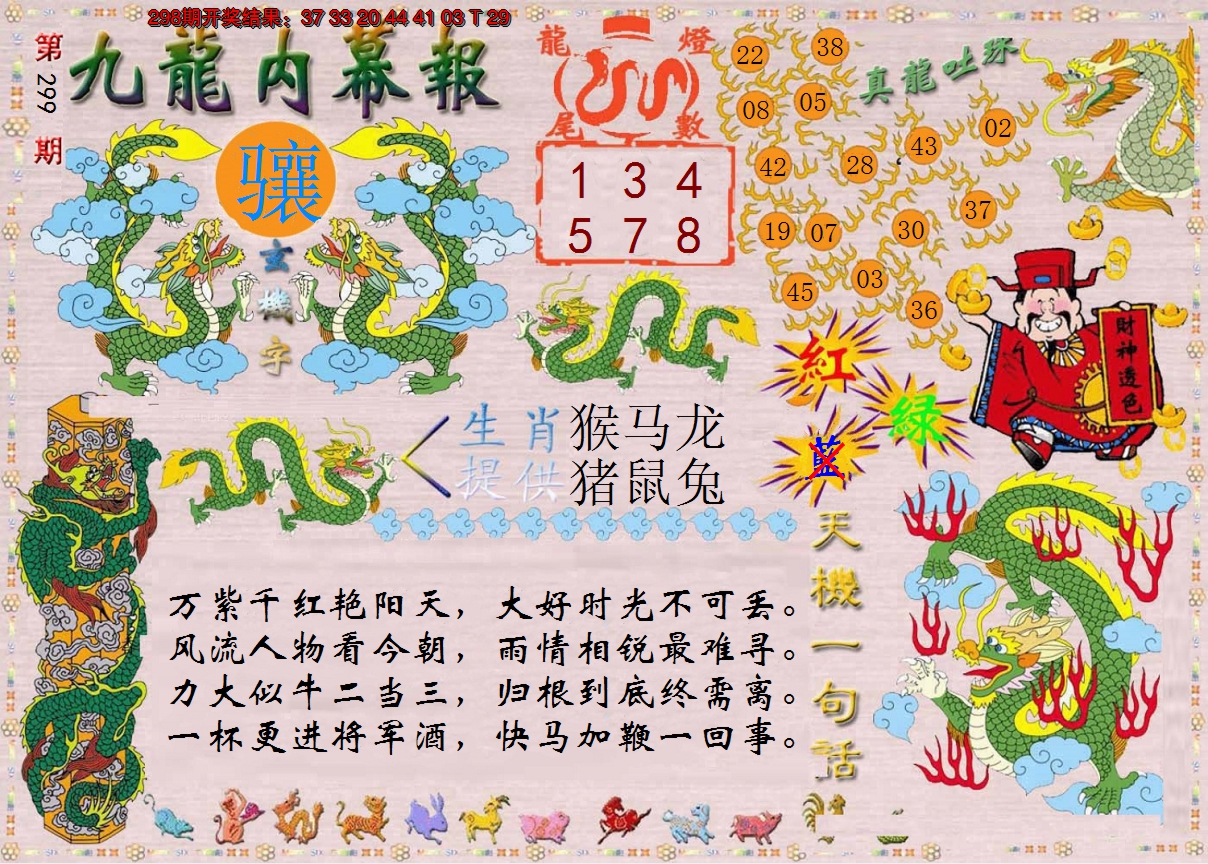 298期开奖结果：37 33 20 44 41 03 T 29
第299期
九龍内幕報
骧
玄機字
龍燈
尾數
1 3 4
5 7 8
真龍吐珠
22 38
08 05
43 02
42 28
37
19 07 30
03
45
36
財神透色
紅
綠
藍
生肖 猴马龙
提供 猪鼠兔
天機一句话
万紫千红艳阳天，大好时光不可丢。
风流人物看今朝，雨情相锐最难寻。
力大似牛二当三，归根到底终需离。
一杯更进将军酒，快马加鞭一回事。